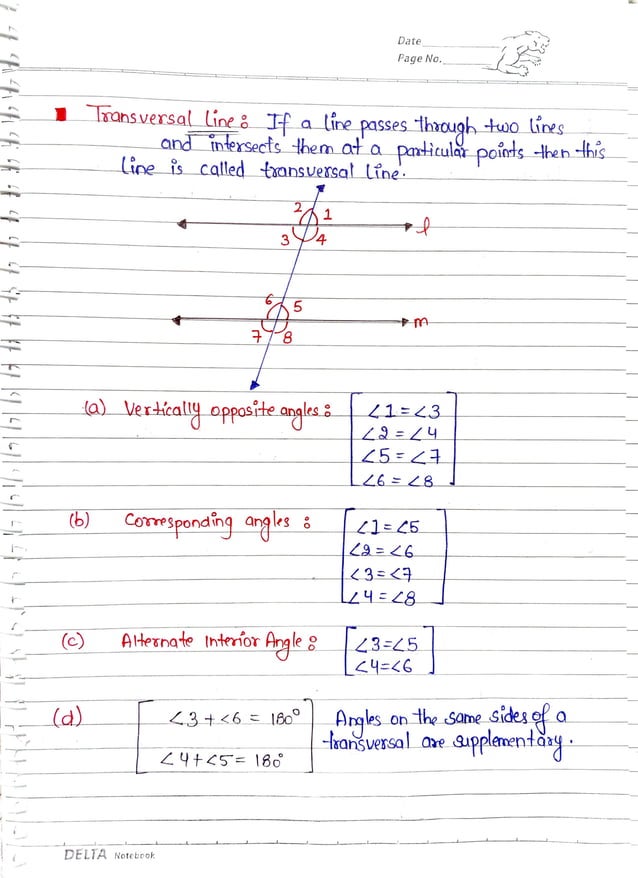 Date
Page No.
Transversal Line: If a line passes through two lines
and intersects them at a particular points then this
line is called transversal line.
2 1
l
3 4
6 5
m
7 8
(a) Vertically opposite angles: ∠1=∠3
∠2=∠4
∠5=∠7
∠6=∠8
(b) Corresponding angles: ∠1=∠5
∠2=∠6
∠3=∠7
∠4=∠8
(c) Alternate Interior Angle: ∠3=∠5
∠4=∠6
(d) ∠3+∠6=180° Angles on the same sides of a
transversal are supplementary.
∠4+∠5=180°
DELTA Notebook